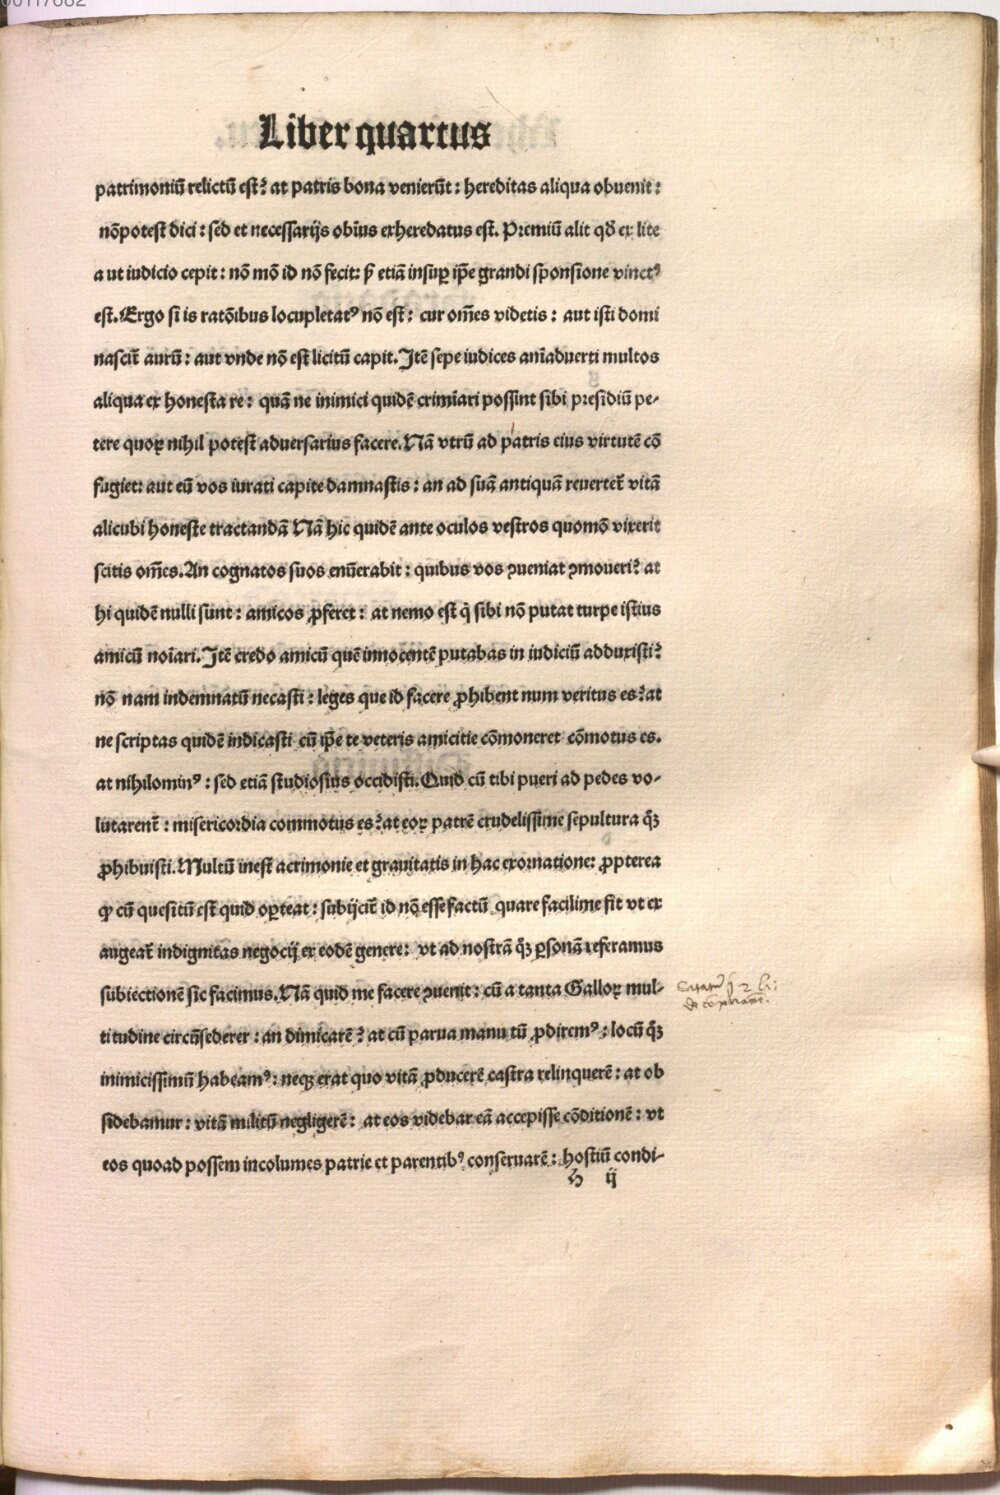 Liber quartus
patrimoniū relictū est? at patris bona venierūt : hereditas aliqua obuenit :
nōpotest dici : sed et necessarijs oĩbus exheredatus est. Premiū alit qď ex lite
a ut iudicio cepit : nō mō id nō fecit: ꝑ etiā insuꝑ ip̄e grandi sponsione vinctꝰ
est. Ergo si is ratōibus locupletatꝰ nō est : cur om̄es videtis : aut isti domi
nascit̄ aurū : aut vnde nō est licitū capit. Itē sepe iudices aĩaduerti multos
aliqua ex honesta re : quā ne inimici quidē crimĩari possint sibi presidiū pe-
tere quoꝝ nihil potest aduersarius facere. Nā vtrū ad patris eius virtutē cō
fugiet: aut eū vos iurati capite damnastis : an ad suā antiquā reuertet̄ vitā
alicubi honeste tractandā Nā hic quidē ante oculos vestros quomō vixerit
scitis om̄es. An cognatos suos enūerabit : quibus vos ꝯueniat ꝯmoueri? at
hi quidē nulli sunt : amicos ꝓferet : at nemo est q̇ sibi nō putat turpe istius
amicū noĩari. Itē credo amicū quē innocentē putabas in iudiciū adduxisti?
nō nam indemnatū necasti : leges que id facere ꝓhibent num veritus es? at
ne scriptas quidē indicasti cū ip̄e te veteris amicitie cōmoneret cōmotus es.
at nihilominꝰ : sed etiā studiosius occidisti. Quid cū tibi pueri ad pedes vo-
lutarent̄ : misericordia commotus es? at eoꝝ patrē crudelissime sepultura q̄ꝫ
ꝓhibuisti. Multū inest acrimonie et grauitatis in hac exornatione: ꝓpterea
ꝙ cū quesitū est quid oꝑteat : subijcit̄ id nō esse factū quare facilime fit vt ex
augeat̄ indignitas negocij ex eodē genere : vt ad nostrā q̄ꝫ ꝑsonā referamus
subiectionē sic facimus. Nā quid me facere ꝯuenit : cū a tanta Galloꝝ mul-
titudine circūsederer : an dimicarē? at cū parua manu tū ꝓdiremꝰ : locū q̄ꝫ
inimicissimū habeamꝰ : neqꝫ erat quo vitā ꝓducerē castra relinquerē : at ob
sidebamur : vitā militū negligerē : at eos videbar eā accepisse cōditionē : vt
eos quoad possem incolumes patrie et parentibꝰ conseruarē : hostiū condi-
h ij